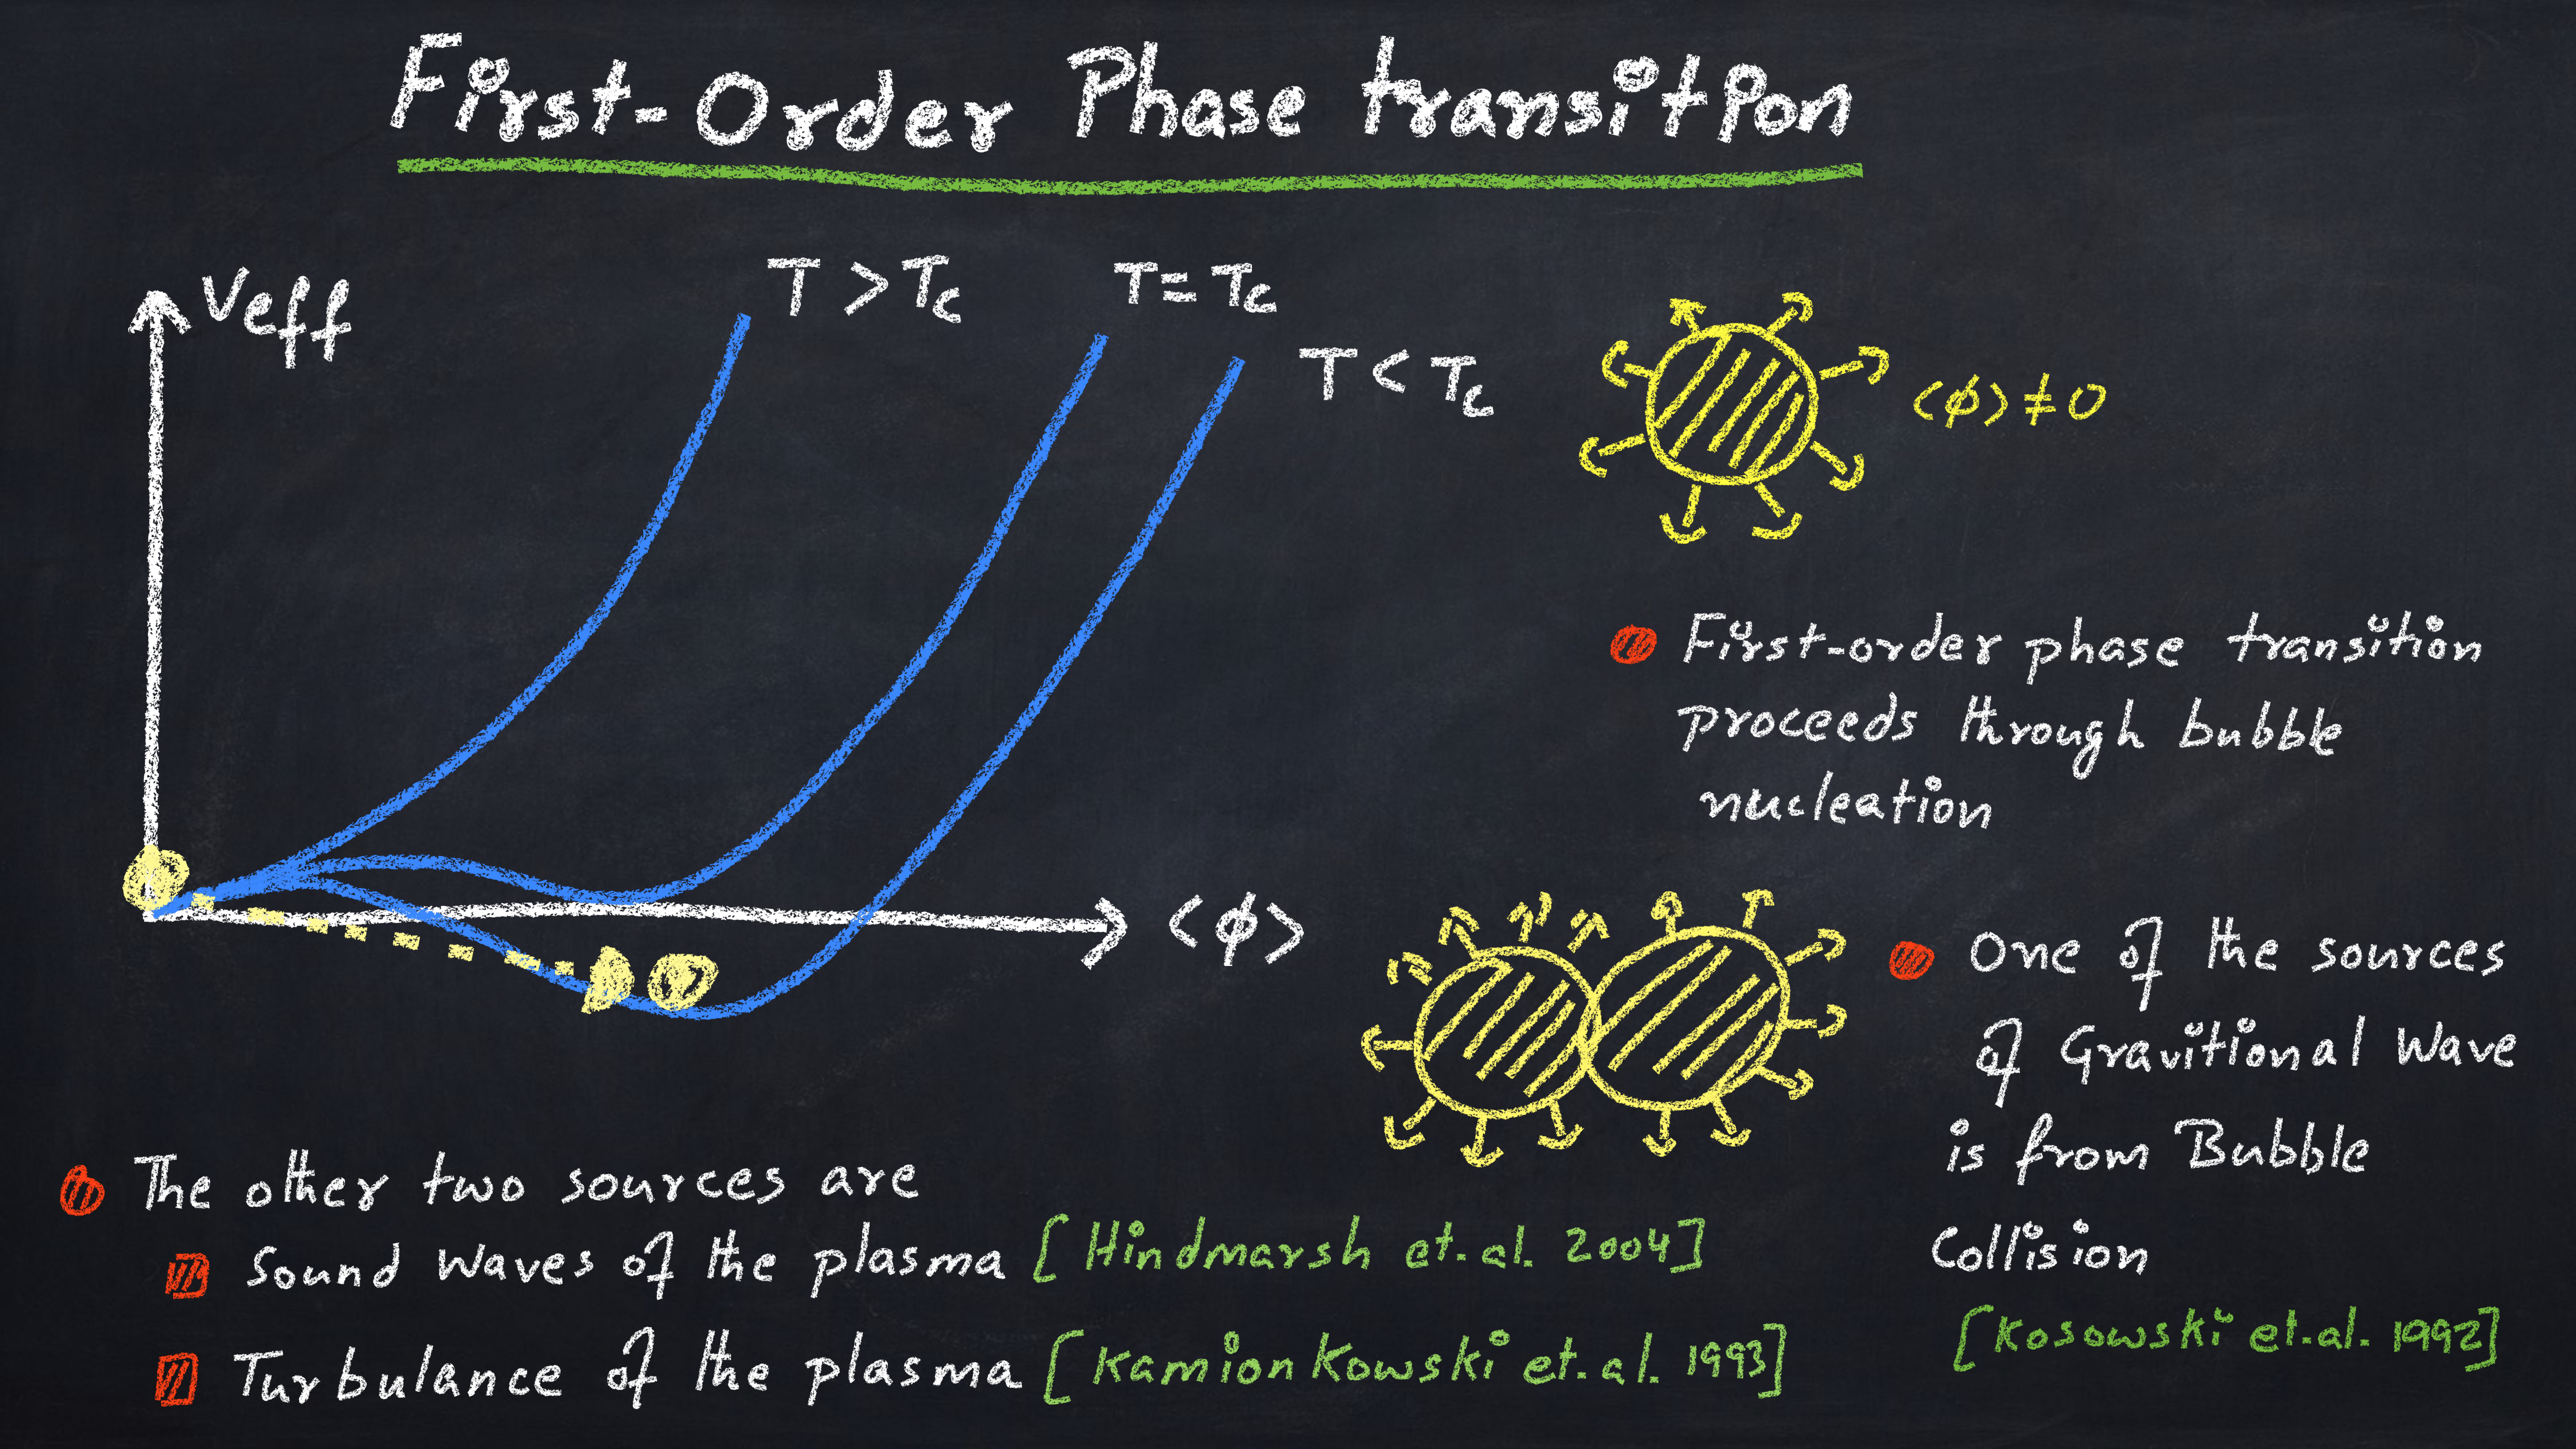 First-Order Phase transition
Veff
T > Tc
T = Tc
T < Tc
<ϕ> ≠ 0
First-order phase transition
proceeds through bubble
nucleation
<ϕ>
One of the sources
of Gravitional Wave
is from Bubble
Collision
[Kosowski et.al. 1992]
The other two sources are
Sound Waves of the plasma [Hindmarsh et.al. 2004]
Turbulance of the plasma [KamionKowski et.al. 1993]